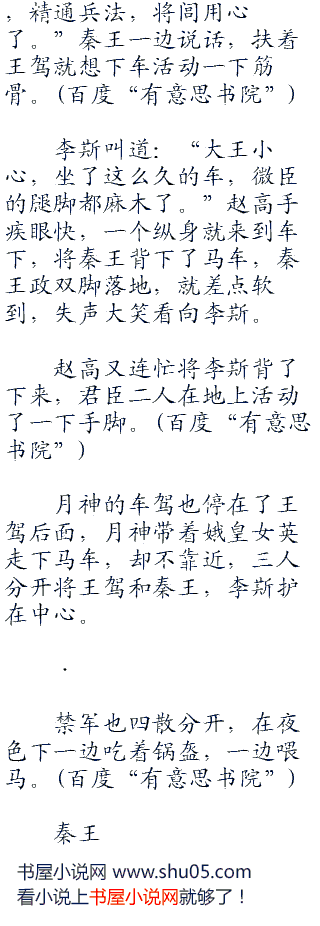 ，精通兵法，将闾用心
了。”秦王一边说话，扶着
王驾就想下车活动一下筋
骨。(百度“有意思书院”)
李斯叫道：“大王小
心，坐了这么久的车，微臣
的腿脚都麻木了。”赵高手
疾眼快，一个纵身就来到车
下，将秦王背下了马车，秦
王政双脚落地，就差点软
到，失声大笑看向李斯。
赵高又连忙将李斯背了
下来，君臣二人在地上活动
了一下手脚。(百度“有意思
书院”)
月神的车驾也停在了王
驾后面，月神带着娥皇女英
走下马车，却不靠近，三人
分开将王驾和秦王，李斯护
在中心。
.
禁军也四散分开，在夜
色下一边吃着锅盔，一边喂
马。(百度“有意思书院”)
秦王
书屋小说网 www.shu05.com
看小说上书屋小说网就够了！